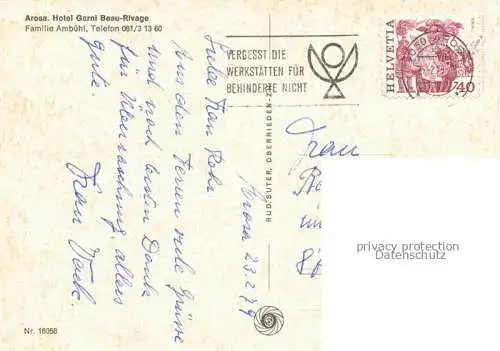 Arosa. Hotel Garni Beau-Rivage
Familie Ambühl, Telefon 081/3 13 60
VERGESST DIE
WERKSTÄTTEN FÜR
BEHINDERTE NICHT
HELVETIA
40
Liebe Frau Rohr
Aus den Ferien viele Grüsse
und noch besten Dank
für Überraschung, alles
gute.
Frau
Arosa 23.2.79
Frau
RUD. SUTER, OBERRIEDEN-ZH
privacy protection
DatenSchutz
Nr. 16058